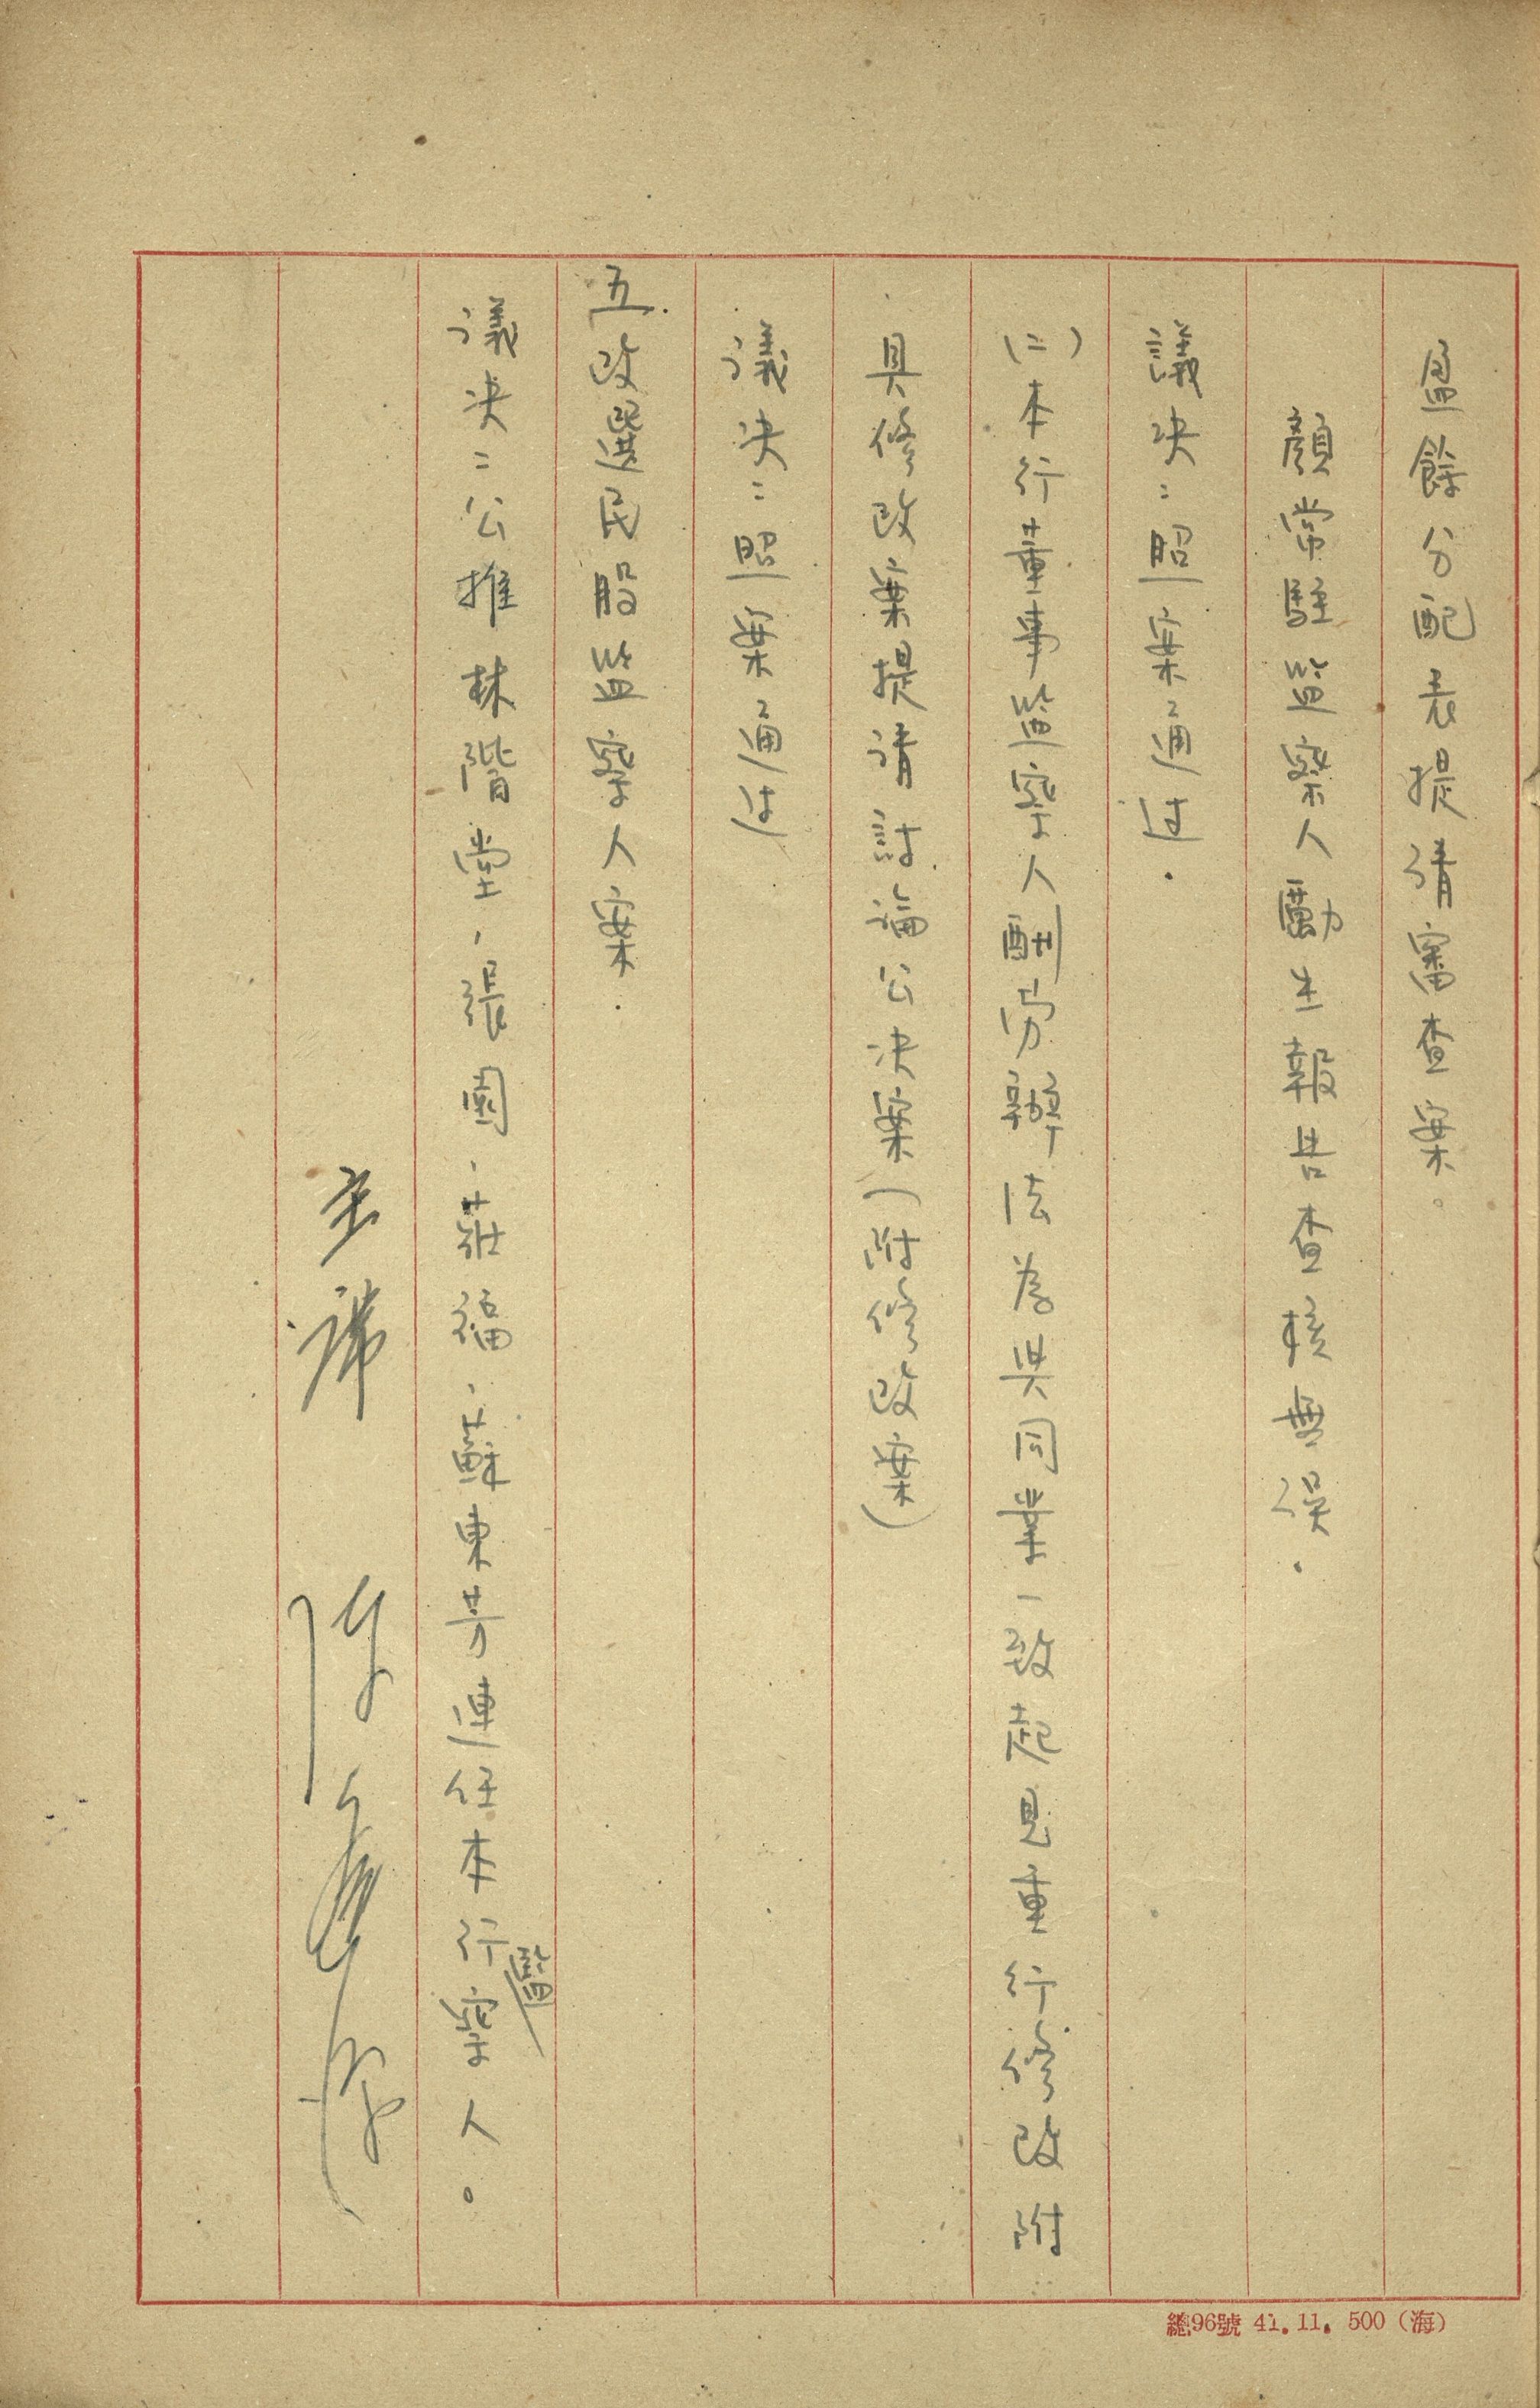 盈餘分配表提請審查案。
顏常駐監察人勵生報告查核無误.
議决：照案通过.
(二)本行董事監察人酬劳辦法為與同業一致起見重行修改附
具修改案提請討論公决案(附修改案)
議决：照案通过
五.改選民股监察人案.
議决：公推林階堂、張園、莊福、蘇東芳連任本行監察人。
主席 陳
總96號 41.11. 500(海)